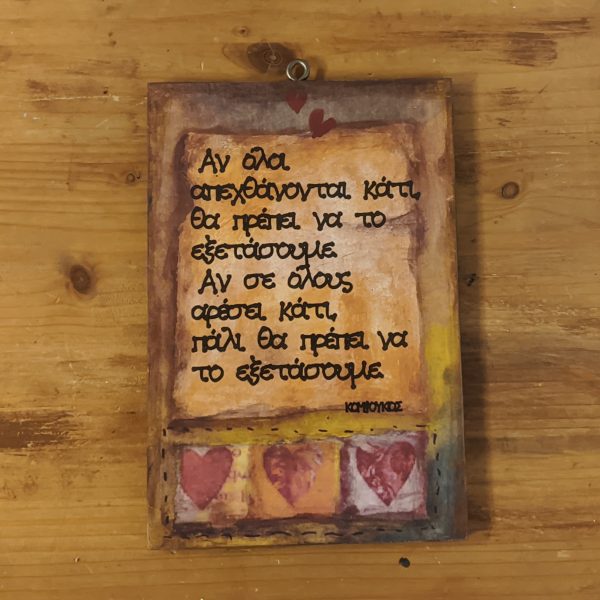 Αν όλοι
απεχθάνονται κάτι,
θα πρέπει να το
εξετάσουμε.
Αν σε όλους
αρέσει κάτι,
πάλι θα πρέπει να
το εξετάσουμε.
ΚΟΜΦΟΥΚΙΟΣ